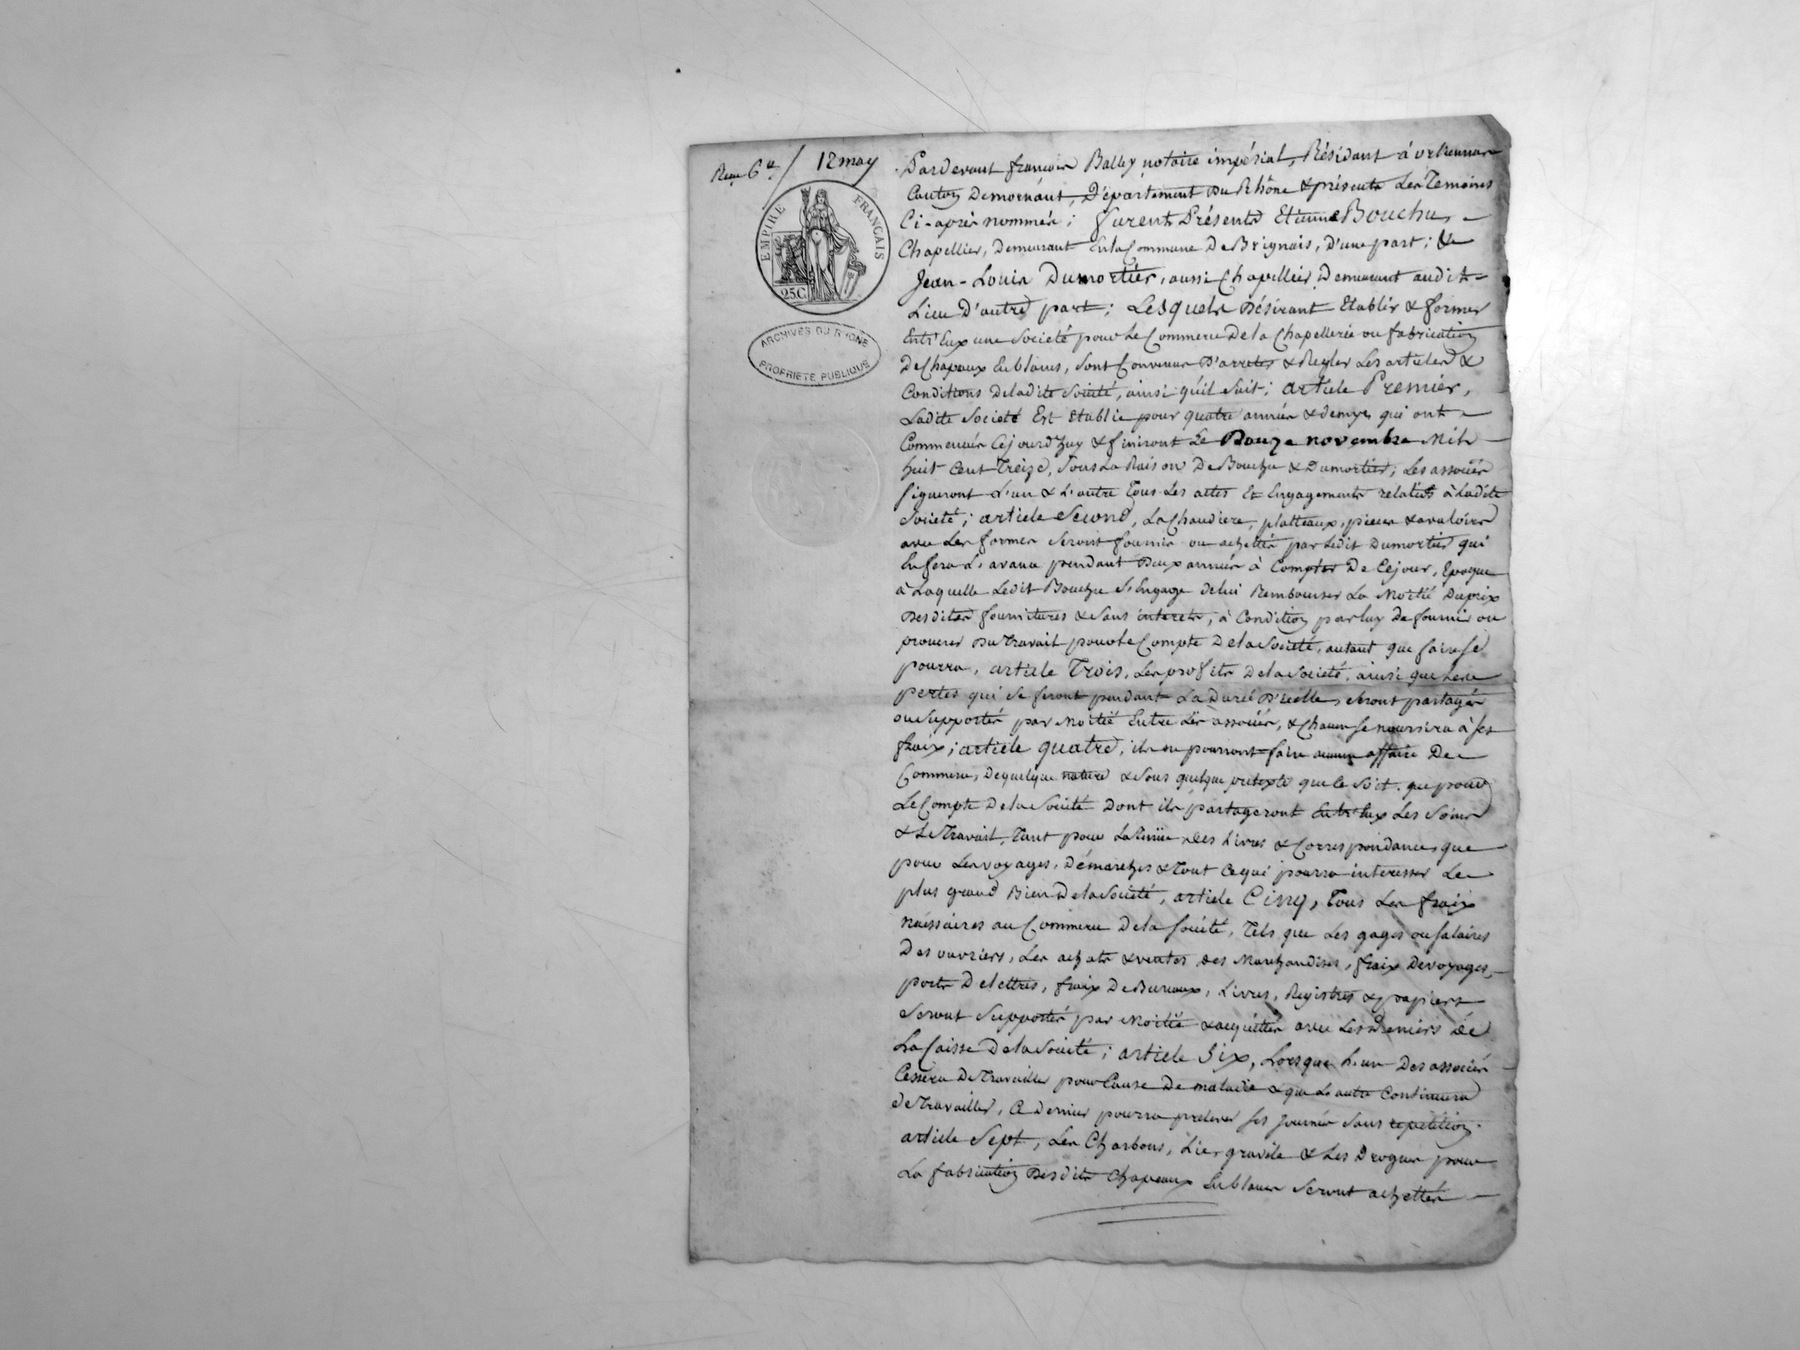 12 may
EMPIRE FRANÇAIS
25C
ARCHIVES DU RHONE
PROPRIETE PUBLIQUE
Pardevant françois Balley notaire impérial, Résidant à
Canton De mornant, Département Du Rhône & présents Les Temoins
Ci-après nommés ; furent Présents Etienne Bouchu,
Chapellier, Demeurant En la Commune De Brignais, D'une part ; &
Jean-Louis Dumortier, aussi Chapellier, Demeurant audit
Lieu D'autre part ; Lesquels Désirant Etablir & former
Entr'Eux une Société pour Le Commerce De la Chapellerie ou fabrication
De Chapeaux En blancs, sont Convenus D'arreter & Regler Les articles &
Conditions De ladite Société, ainsi qu'il suit ; article Premier,
Ladite Société Est Etablie pour quatre années & demye qui ont
Commencés Cejourd'huy & finiront Le Douze novembre Mil
huit Cent Treize, sous La Raison De Bouchu & Dumortier ; Les associés
signeront L'un & L'autre Tous Les actes Et Engagements relatifs à Ladite
Société ; article Second, La Chaudiere, platteaux, pieces & avaloires
avec Les formes seront fournis ou achettés par Ledit Dumortier qui
En fera L'avance pendant Deux années à Compter De Cejour, Epoque
à Laquelle Ledit Bouchu s'Engage De lui Rembourser La Moitié Du prix
Desdites fournitures & sans interets, à Condition par luy De fournir ou
procurer Du Travail pour le Compte De la Société, autant que faire se
pourra, article Trois, Les profits De la Société, ainsi que Les
pertes qui se feront pendant La Durée D'icelle, seront partagés
ou supportés par Moitié Entre Les associés, & Chacun se nourrira à ses
fraix ; article quatre, ils ne pourront faire aucune affaire De
Commerce, De quelque nature & sous quelque pretexte que Ce soit, que pour
Le Compte De la Société Dont ils partageront Entr'Eux Les soins
& Le Travail, Tant pour La Tenüe Des Livres & Correspondances, que
pour Les voyages, Démarches & Tout Ce qui pourra interesser Le
plus grand Bien De la Société, article Cinq, Tous Les fraix
nécéssaires au Commerce De la Société, Tels que Les gages ou salaires
Des ouvriers, Les achats & ventes Des Marchandises, fraix De voyages,
ports De lettres, fraix De Bureaux, Livres, Registres & papiers
seront supportés par Moitié & acquittés avec Les Deniers De
La Caisse De la Société ; article Six, Lorsque L'un Des associés
Cessera De Travailler pour Cause De maladie & que L'autre Continuera
de Travailler, Ce dernier pourra prelever ses journées sans repetition.
article Sept, Les Charbons, Lie, gravele & Les Drogues pour
La fabrication Desdits Chapeaux En blancs seront achettés